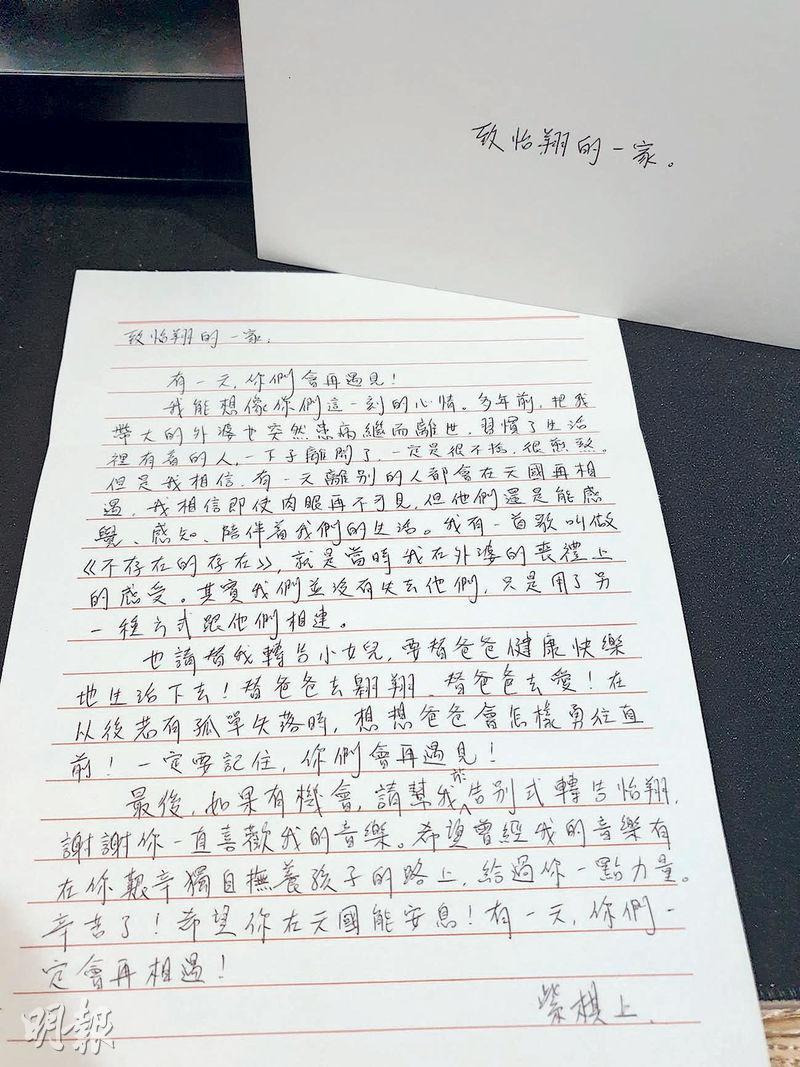 致怡翔的一家。
致怡翔的一家:
有一天,你們會再遇見!
我能想像你們這一刻的心情。多年前,把我
帶大的外婆也突然患病繼而離世,習慣了生活
裡有着的人,一下子離開了,一定是很不捨,很愁煞。
但是我相信,有一天離別的人都會在天國再相
遇,我相信即使肉眼再不可見,但他們還是能感
覺、感知、陪伴着我們的生活。我有一首歌叫做
《不存在的存在》,就是當時我在外婆的喪禮上
的感受。其實我們並沒有失去他們,只是用了另
一種方式跟他們相連。
也請替我轉告小女兒,要替爸爸健康快樂
地生活下去!替爸爸去翱翔、替爸爸去愛!在
以後若有孤單失落時,想想爸爸會怎樣勇往直
前!一定要記住,你們會再遇見!
最後,如果有機會,請幫我於告別式轉告怡翔,
謝謝你一直喜歡我的音樂。希望曾經我的音樂有
在你艱辛獨自撫養孩子的路上,給過你一點力量。
辛苦了!希望你在天國能安息!有一天,你們一
定會再相遇!
紫棋上.
明報